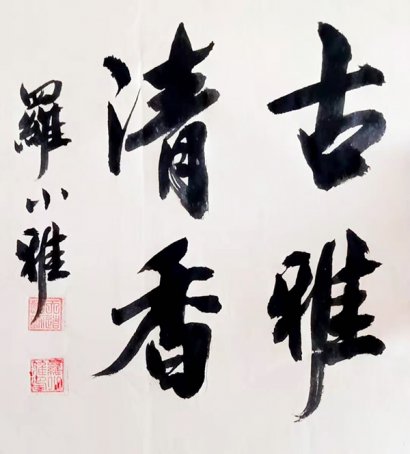 古雅
清香
羅小雅